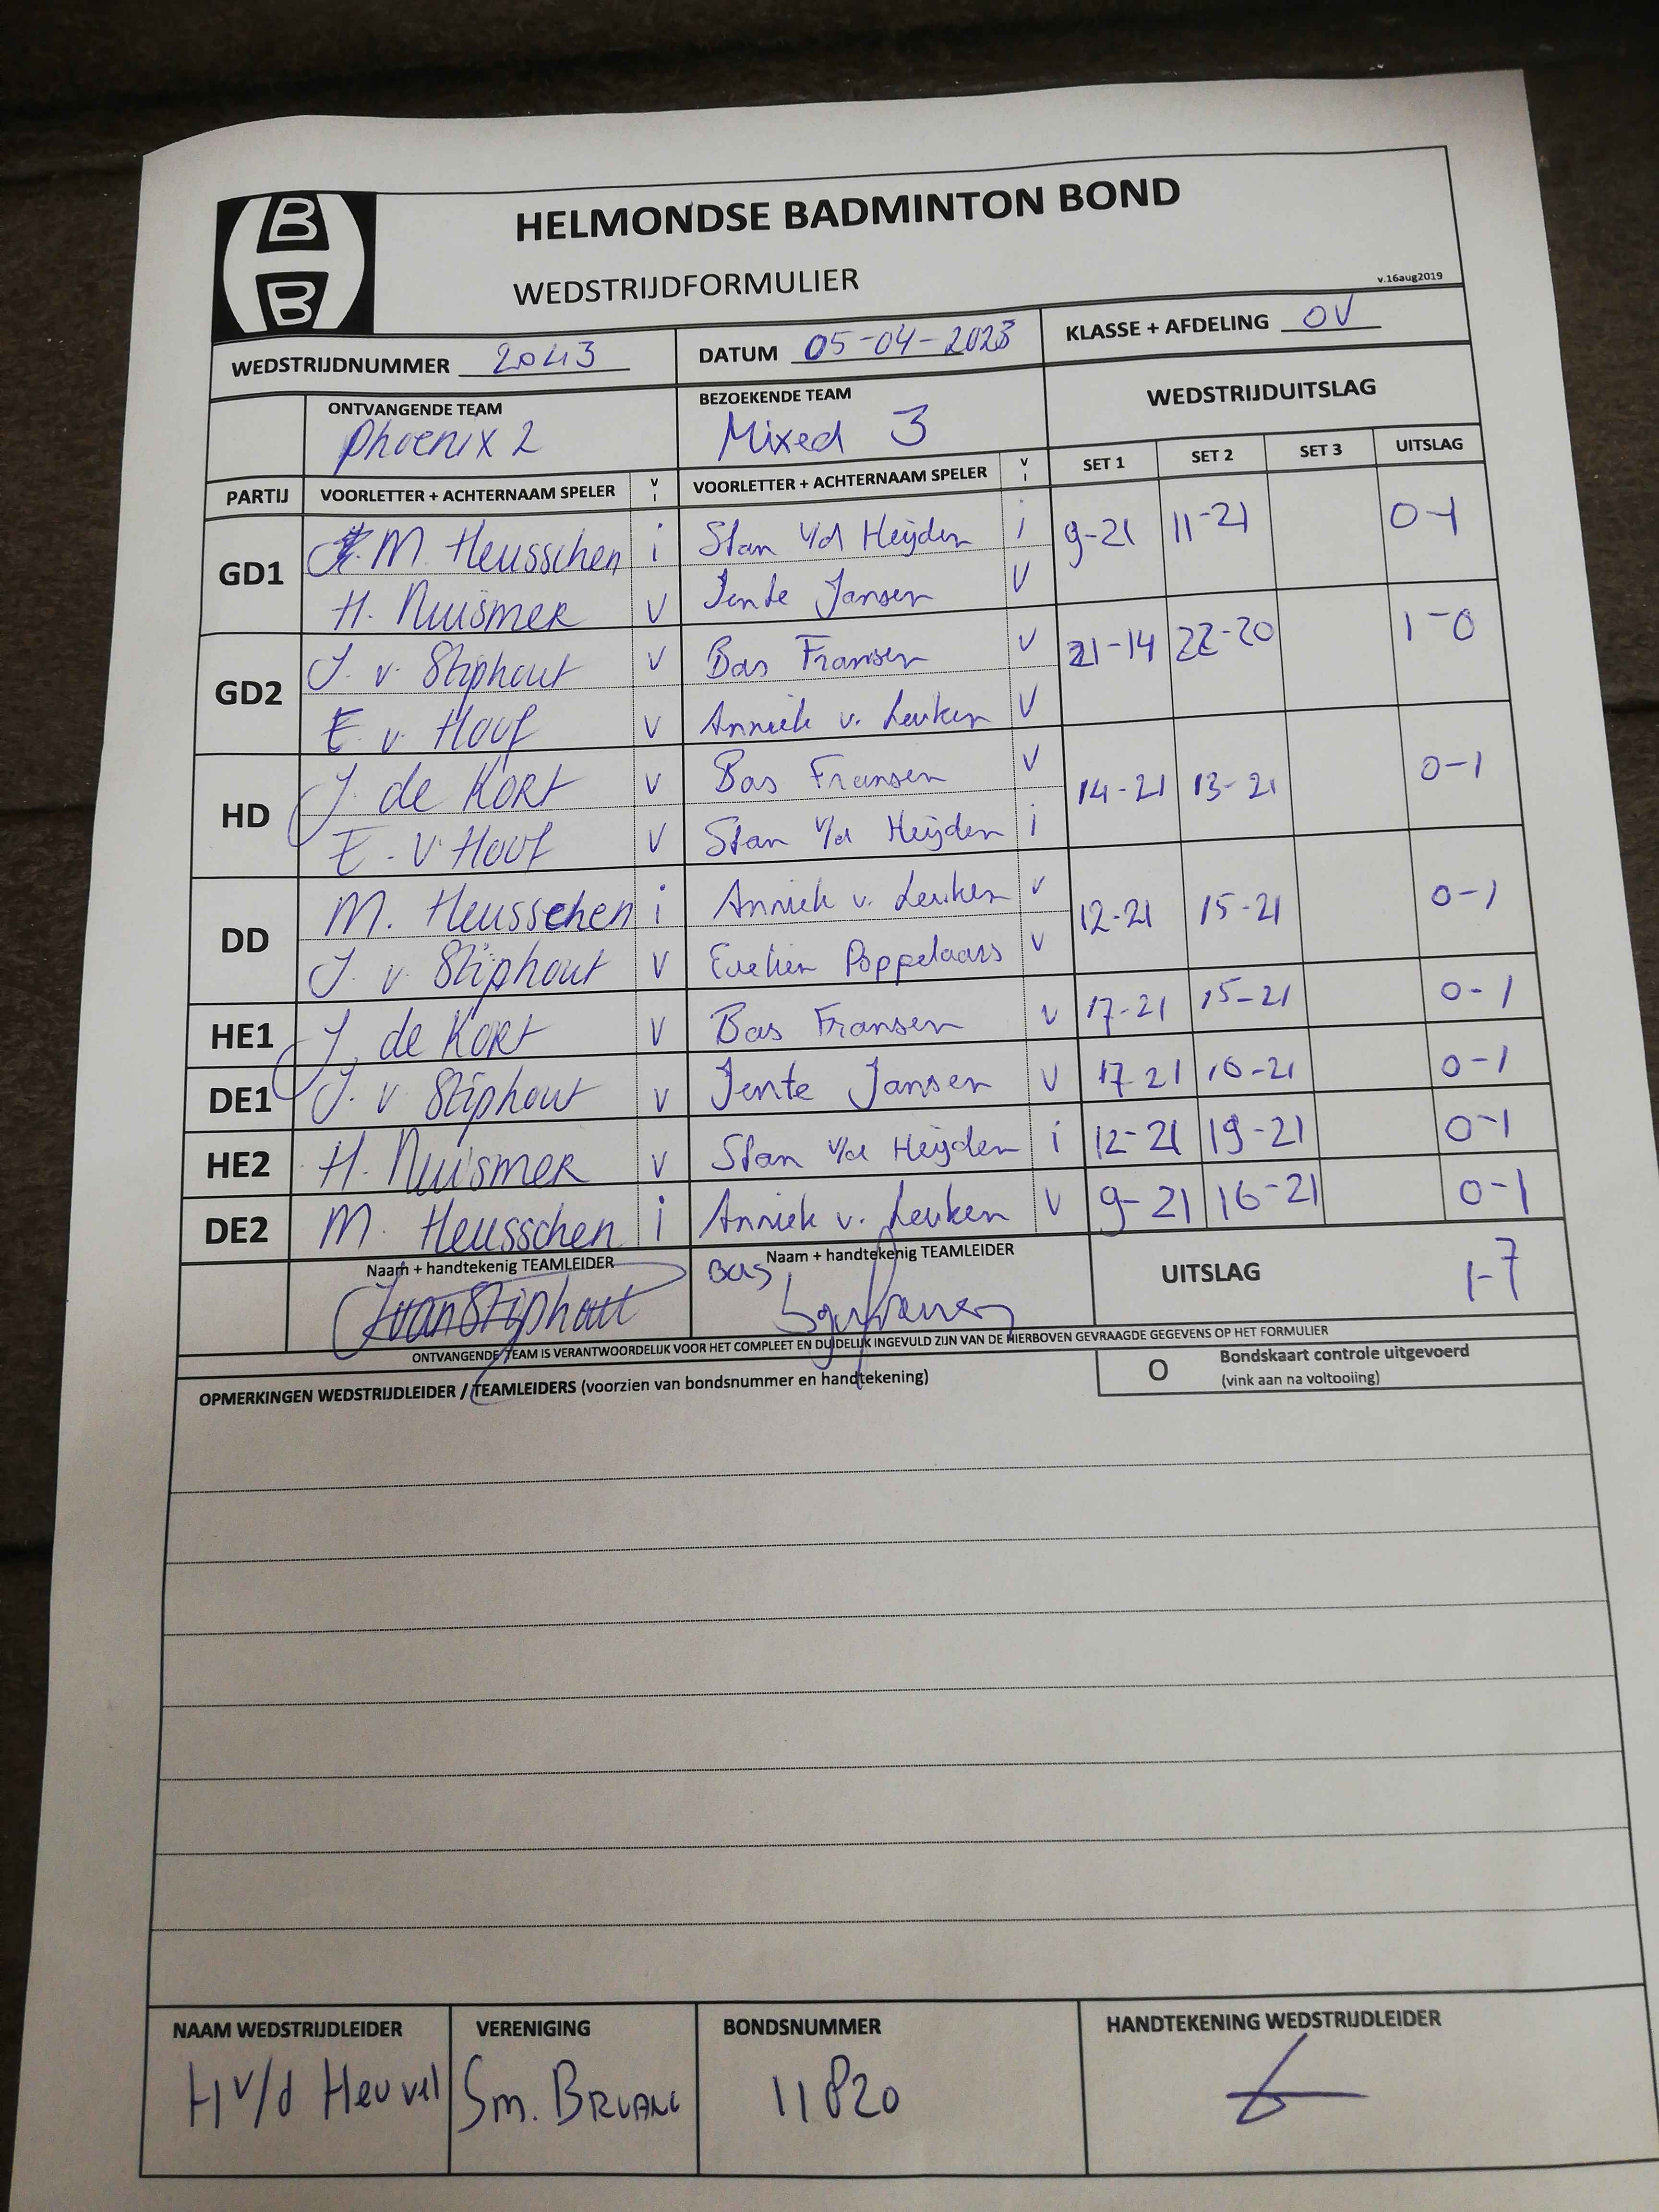 B
B
HELMONDSE BADMINTON BOND
WEDSTRIJDFORMULIER
v.16aug2019
WEDSTRIJDNUMMER 2043 DATUM 05-04-2023 KLASSE + AFDELING OV
ONTVANGENDE TEAM BEZOEKENDE TEAM WEDSTRIJDUITSLAG
Phoenix 2 Mixed 3
PARTIJ VOORLETTER + ACHTERNAAM SPELER V I VOORLETTER + ACHTERNAAM SPELER V I SET 1 SET 2 SET 3 UITSLAG
GD1 M. Heusschen i Stan v/d Heijden i 9-21 11-21 0-1
H. Nuismer V Jente Jansen V
GD2 J. v. Stiphout V Bas Fransen V 21-14 22-20 1-0
E. v. Hoof V Anniek v. Leuken V
HD J. de Kort V Bas Fransen V 14-21 13-21 0-1
E. v Hoof V Stan v/d Heijden i
DD M. Heusschen i Anniek v. Leuken V 12-21 15-21 0-1
J. v. Stiphout V Evelien Poppelaars V
HE1 J. de Kort V Bas Fransen V 17-21 15-21 0-1
DE1 J. v Stiphout V Jente Jansen V 17-21 10-21 0-1
HE2 H. Nuismer V Stan v/d Heijden i 12-21 19-21 0-1
DE2 M. Heusschen i Anniek v. Leuken V 9-21 16-21 0-1
Naam + handtekenig TEAMLEIDER Naam + handtekenig TEAMLEIDER UITSLAG 1-7
JvanStiphout Bas
ONTVANGENDE TEAM IS VERANTWOORDELIJK VOOR HET COMPLEET EN DUIDELIJK INGEVULD ZIJN VAN DE HIERBOVEN GEVRAAGDE GEGEVENS OP HET FORMULIER
OPMERKINGEN WEDSTRIJDLEIDER / TEAMLEIDERS (voorzien van bondsnummer en handtekening) O Bondskaart controle uitgevoerd
(vink aan na voltooiing)
NAAM WEDSTRIJDLEIDER VERENIGING BONDSNUMMER HANDTEKENING WEDSTRIJDLEIDER
H v/d Heuvel Sm. 11820